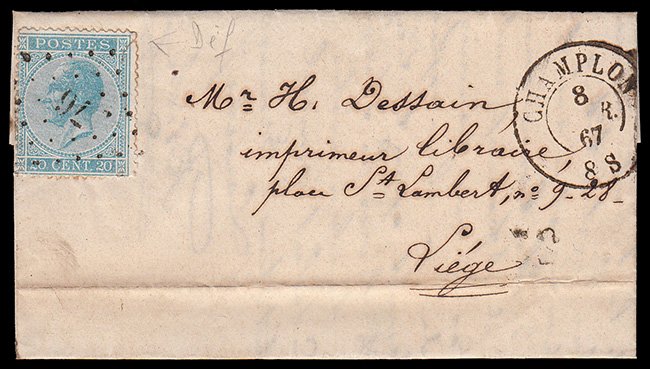 POSTES
20 CENT. 20
← Déf
CHAMPLON
8
R.
67
8 S
Mr. H. Dessain,
imprimeur libraire,
place St. Lambert, no 9-28-
Liége